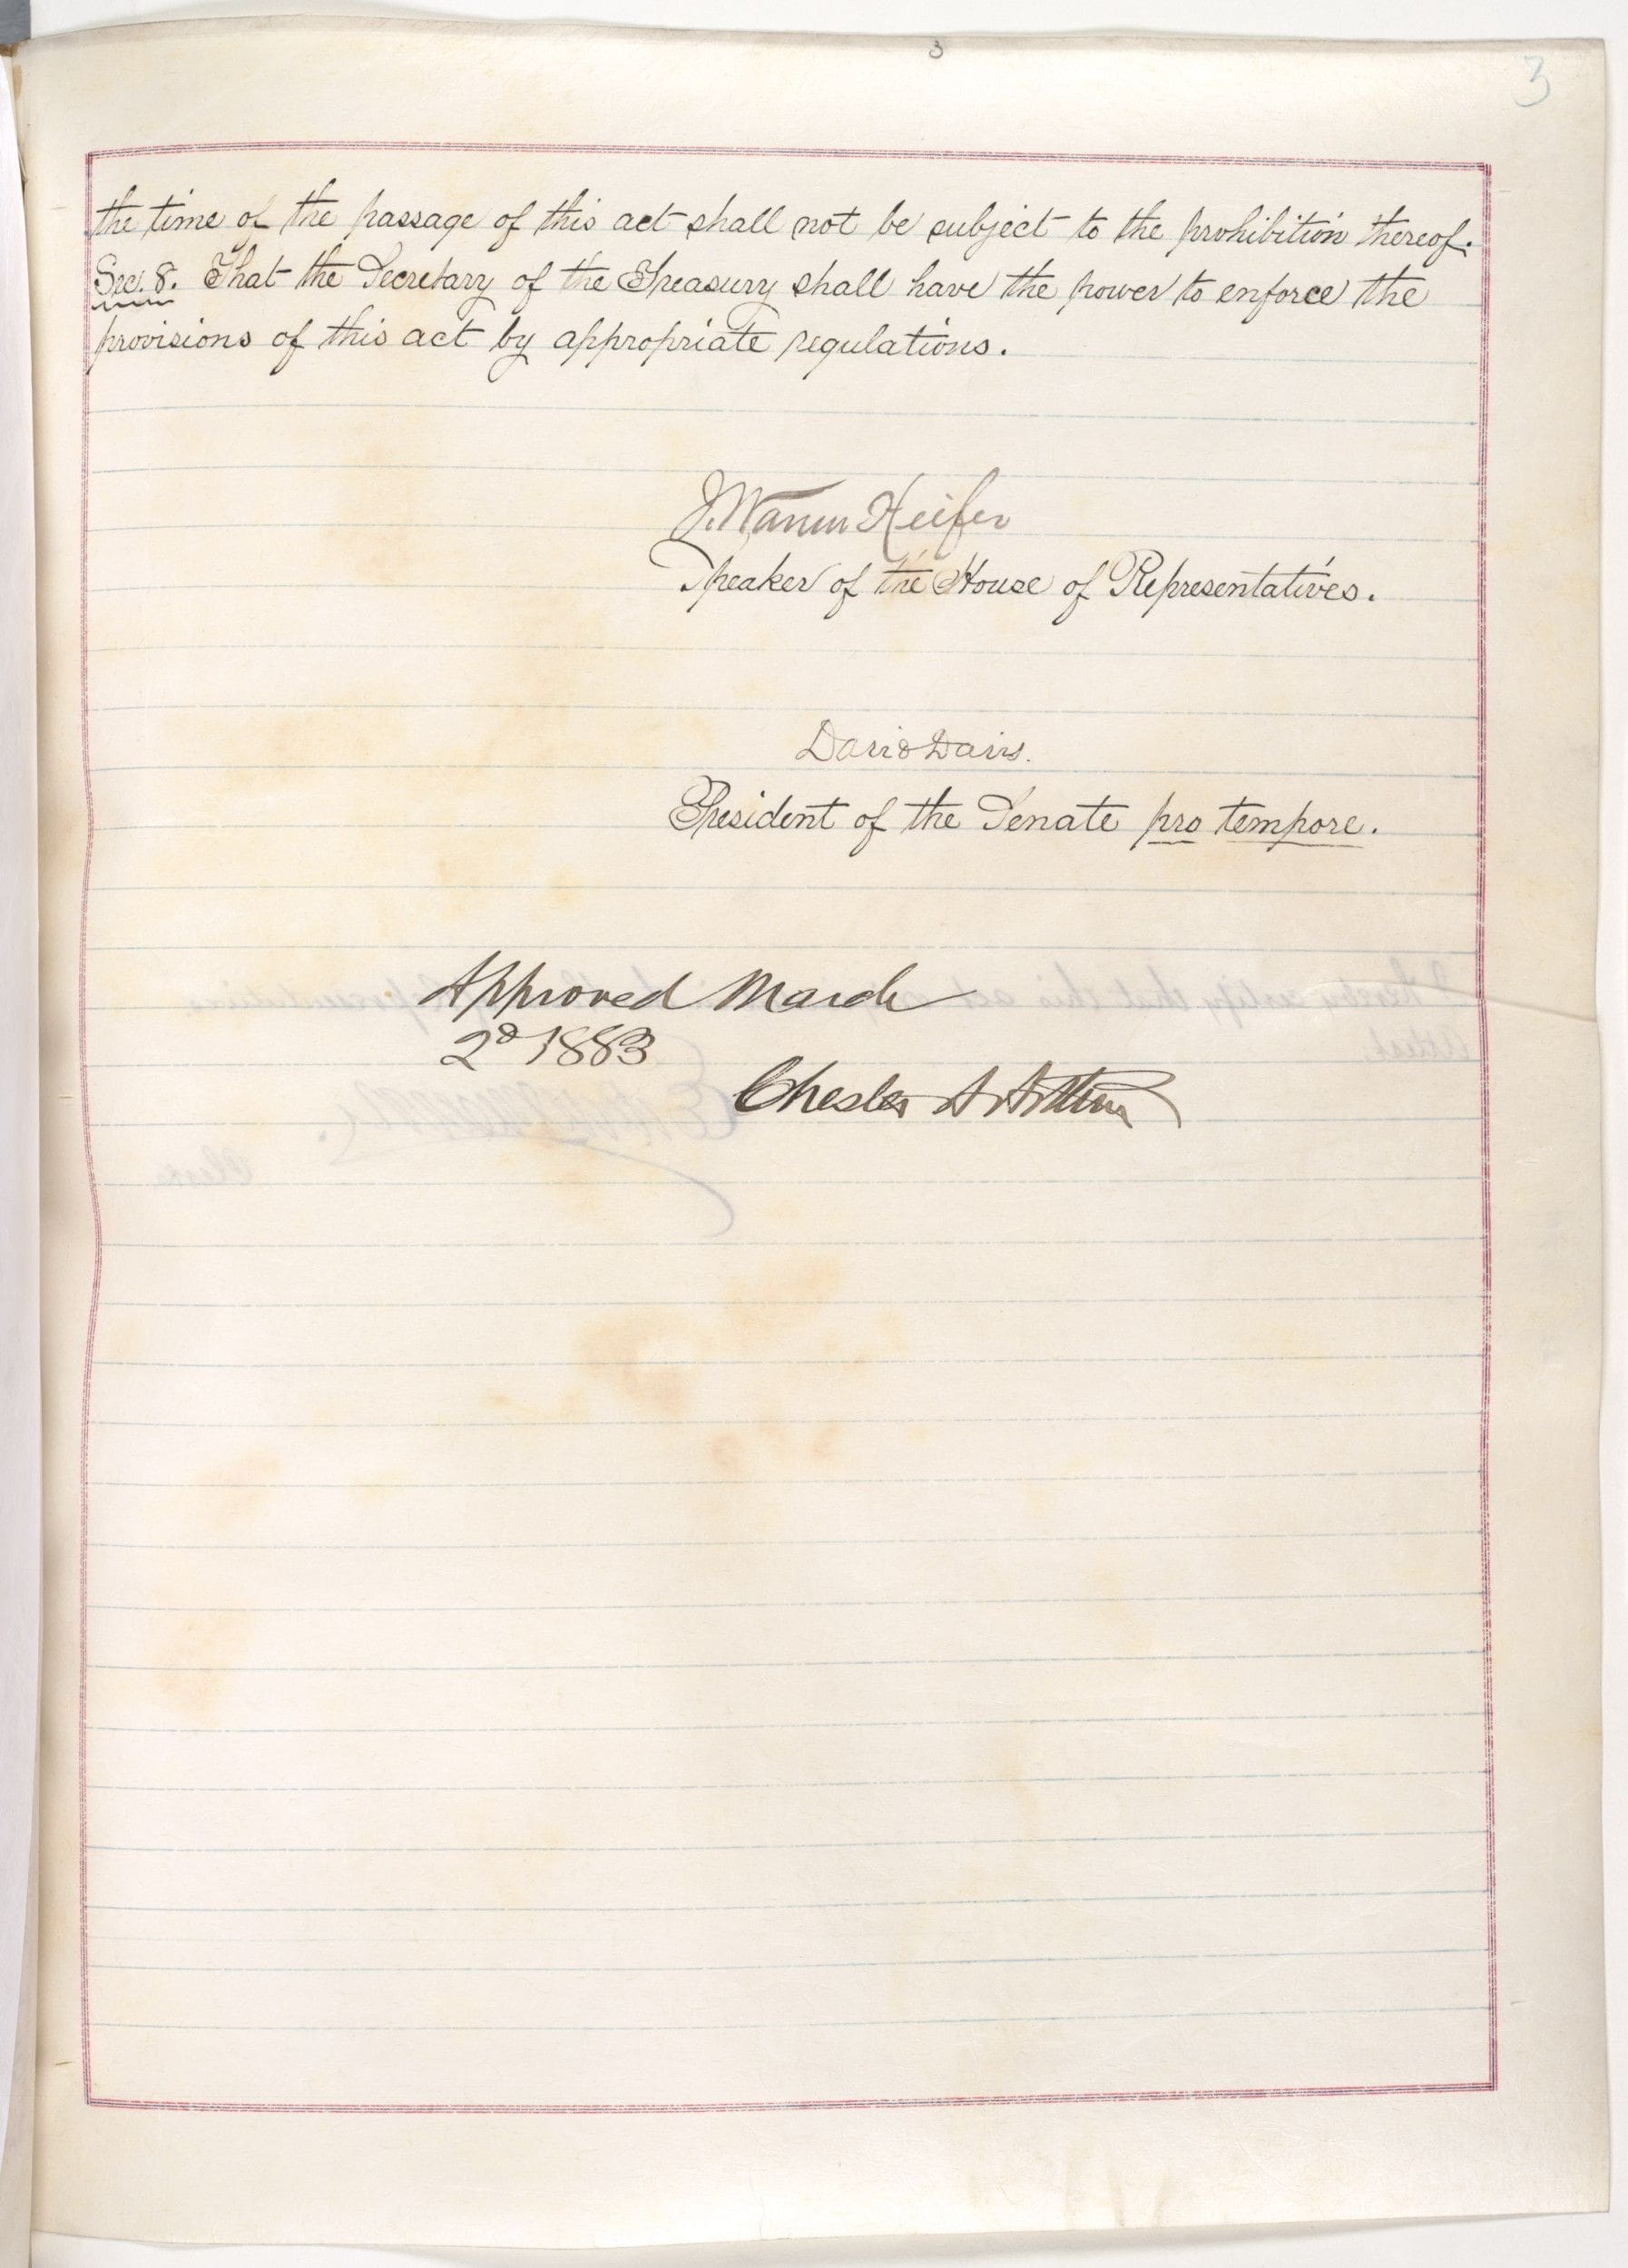 3
3
the time of the passage of this act shall not be subject to the prohibition thereof.
Sec. 8. That the Secretary of the Treasury shall have the power to enforce the
provisions of this act by appropriate regulations.
J. Warren Keifer
Speaker of the House of Representatives.
David Davis.
President of the Senate pro tempore.
I hereby certify that this act
Representatives.
Attest,
Approved March
2d 1883
Chester A Arthur
Clerk